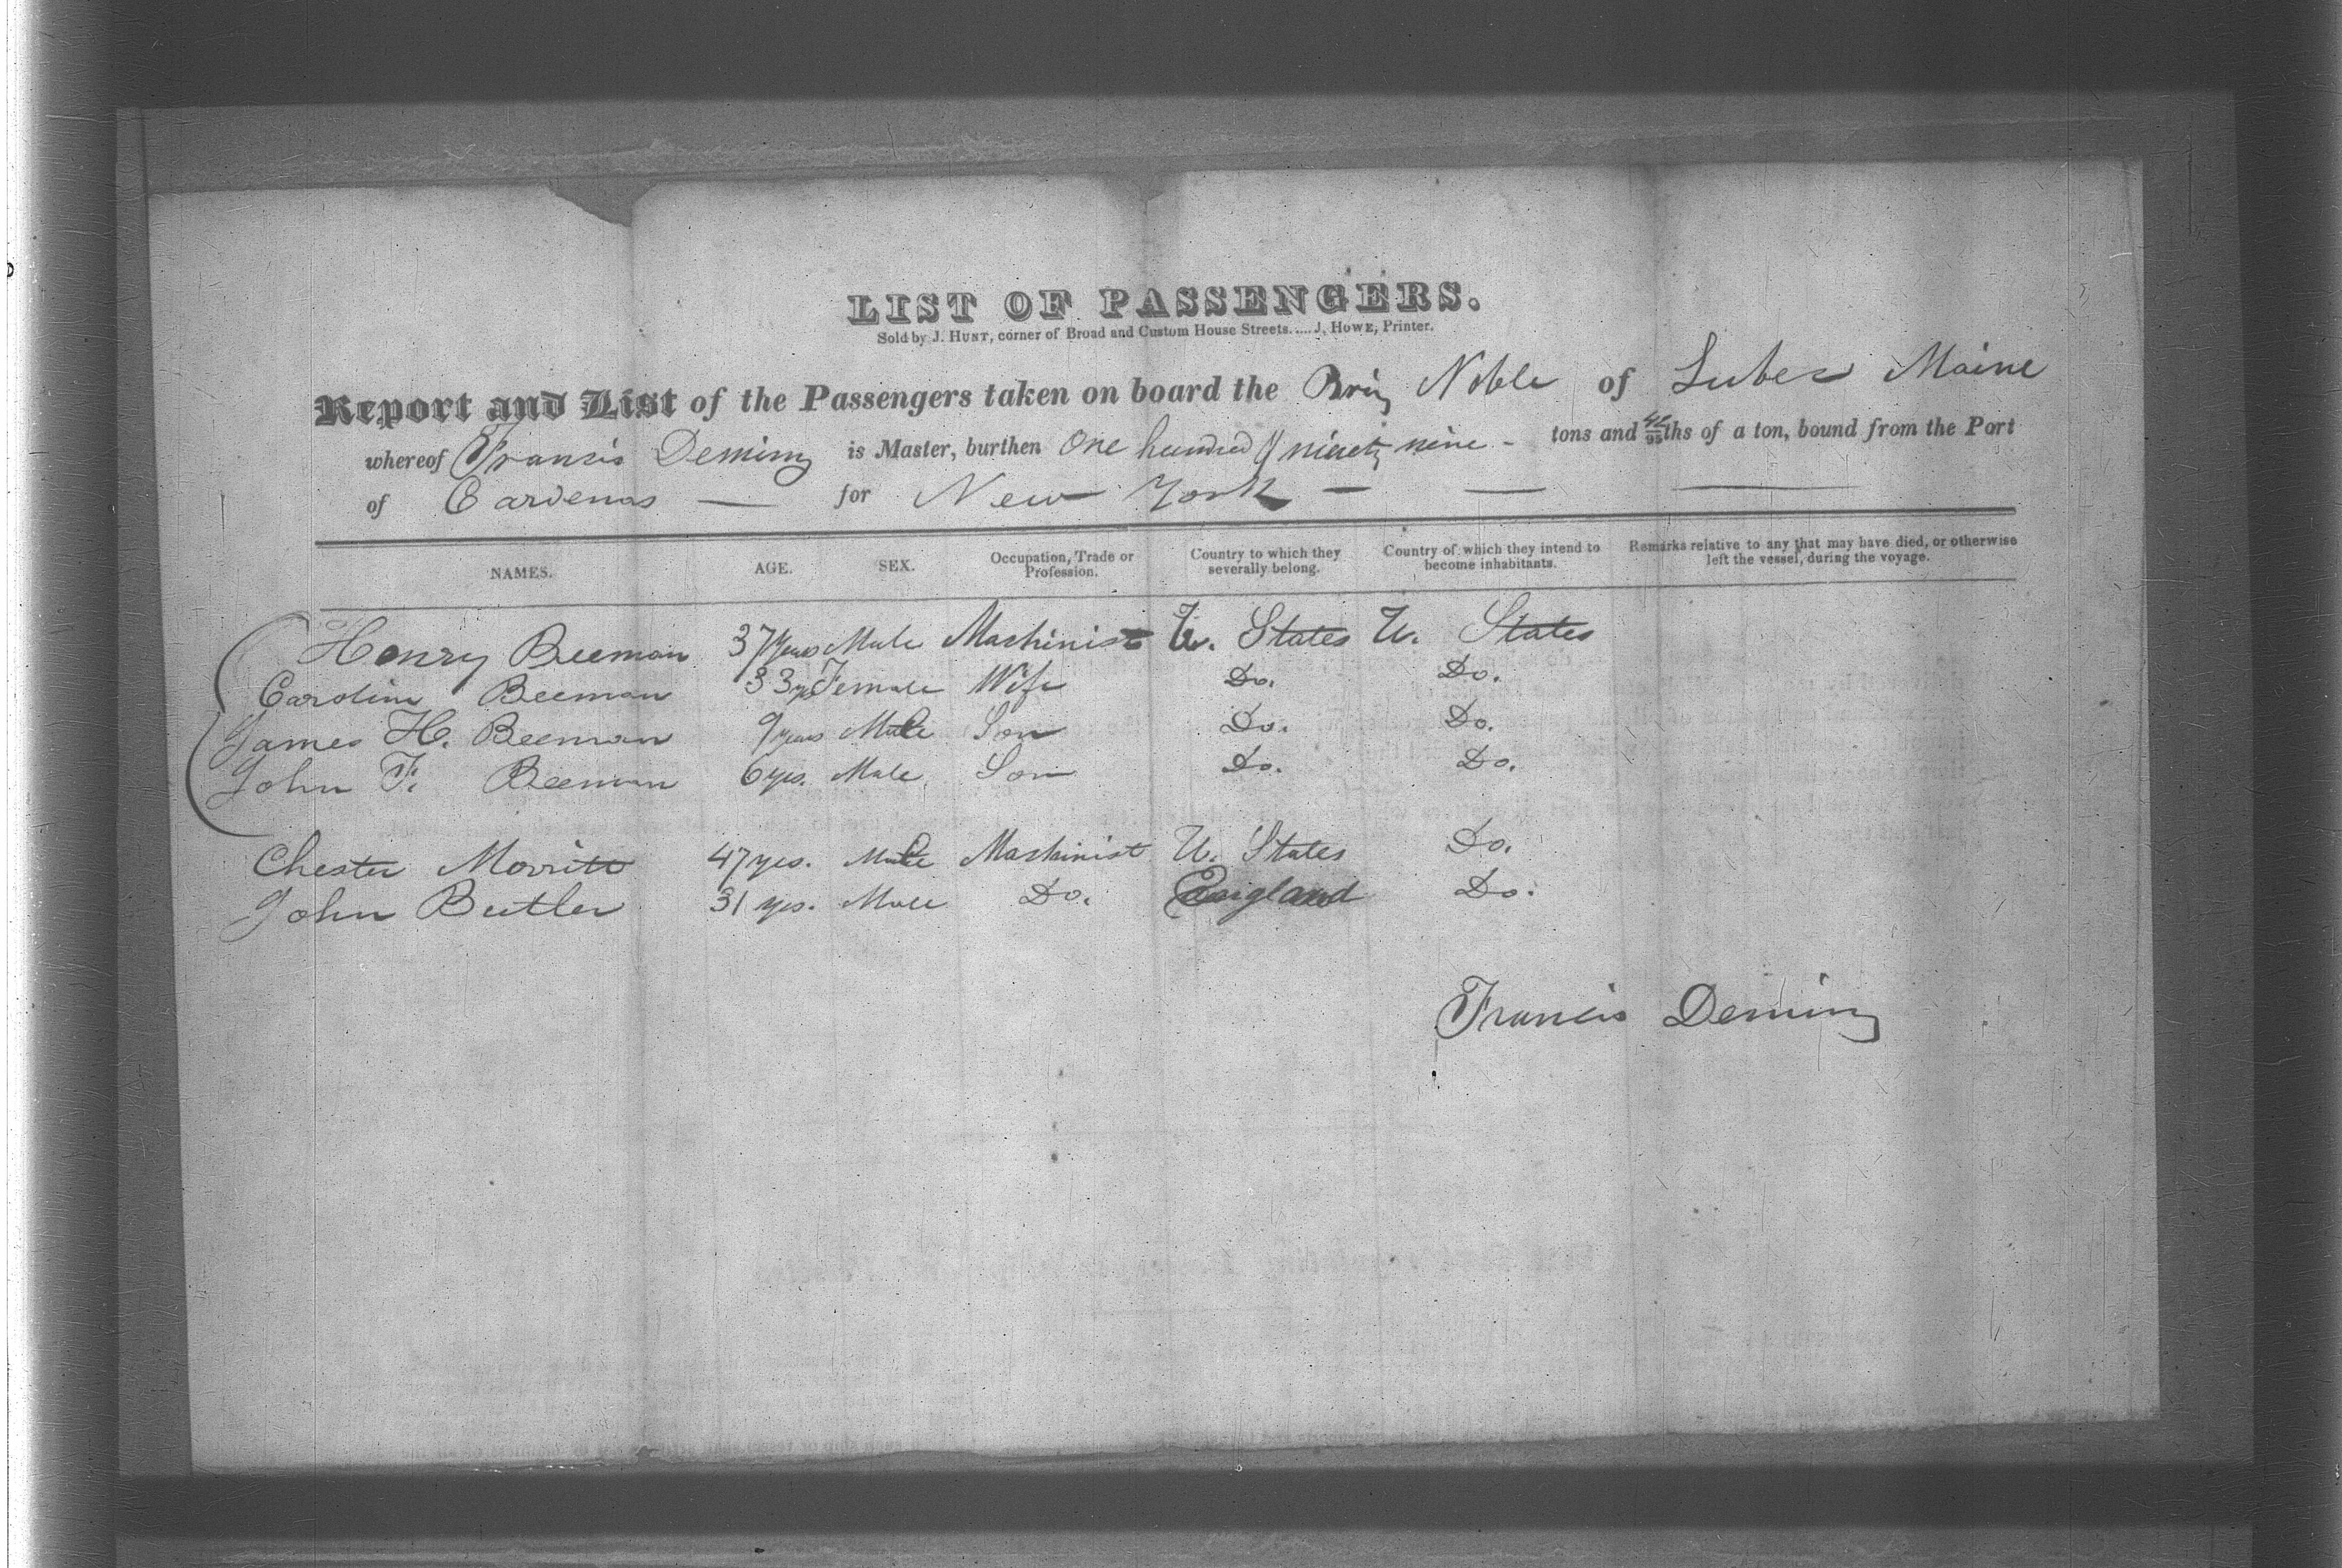 LIST OF PASSENGERS.
Sold by J. HUNT, corner of Broad and Custom House Streets.....J. HOWE, Printer.
Report and List of the Passengers taken on board the Brig Noble of Lubec Maine
whereof Francis Deming is Master, burthen One hundred & ninety nine - tons and 42/95ths of a ton, bound from the Port
of Cardenas — for New York — — —
NAMES. AGE. SEX. Occupation, Trade or Profession. Country to which they severally belong. Country of which they intend to become inhabitants. Remarks relative to any that may have died, or otherwise left the vessel, during the voyage.
Henry Beeman 37 years Male Machinist U. States U. States
Carolin Beeman 33 yrs Female Wife Do. Do.
James H. Beeman 9 years Male Son Do. Do.
John F. Beeman 6 yrs. Male Son Do. Do.
Chester Morritt 47 yrs. Male Machinist U. States Do.
John Butler 31 yrs. Male Do. England Do.
Francis Deming